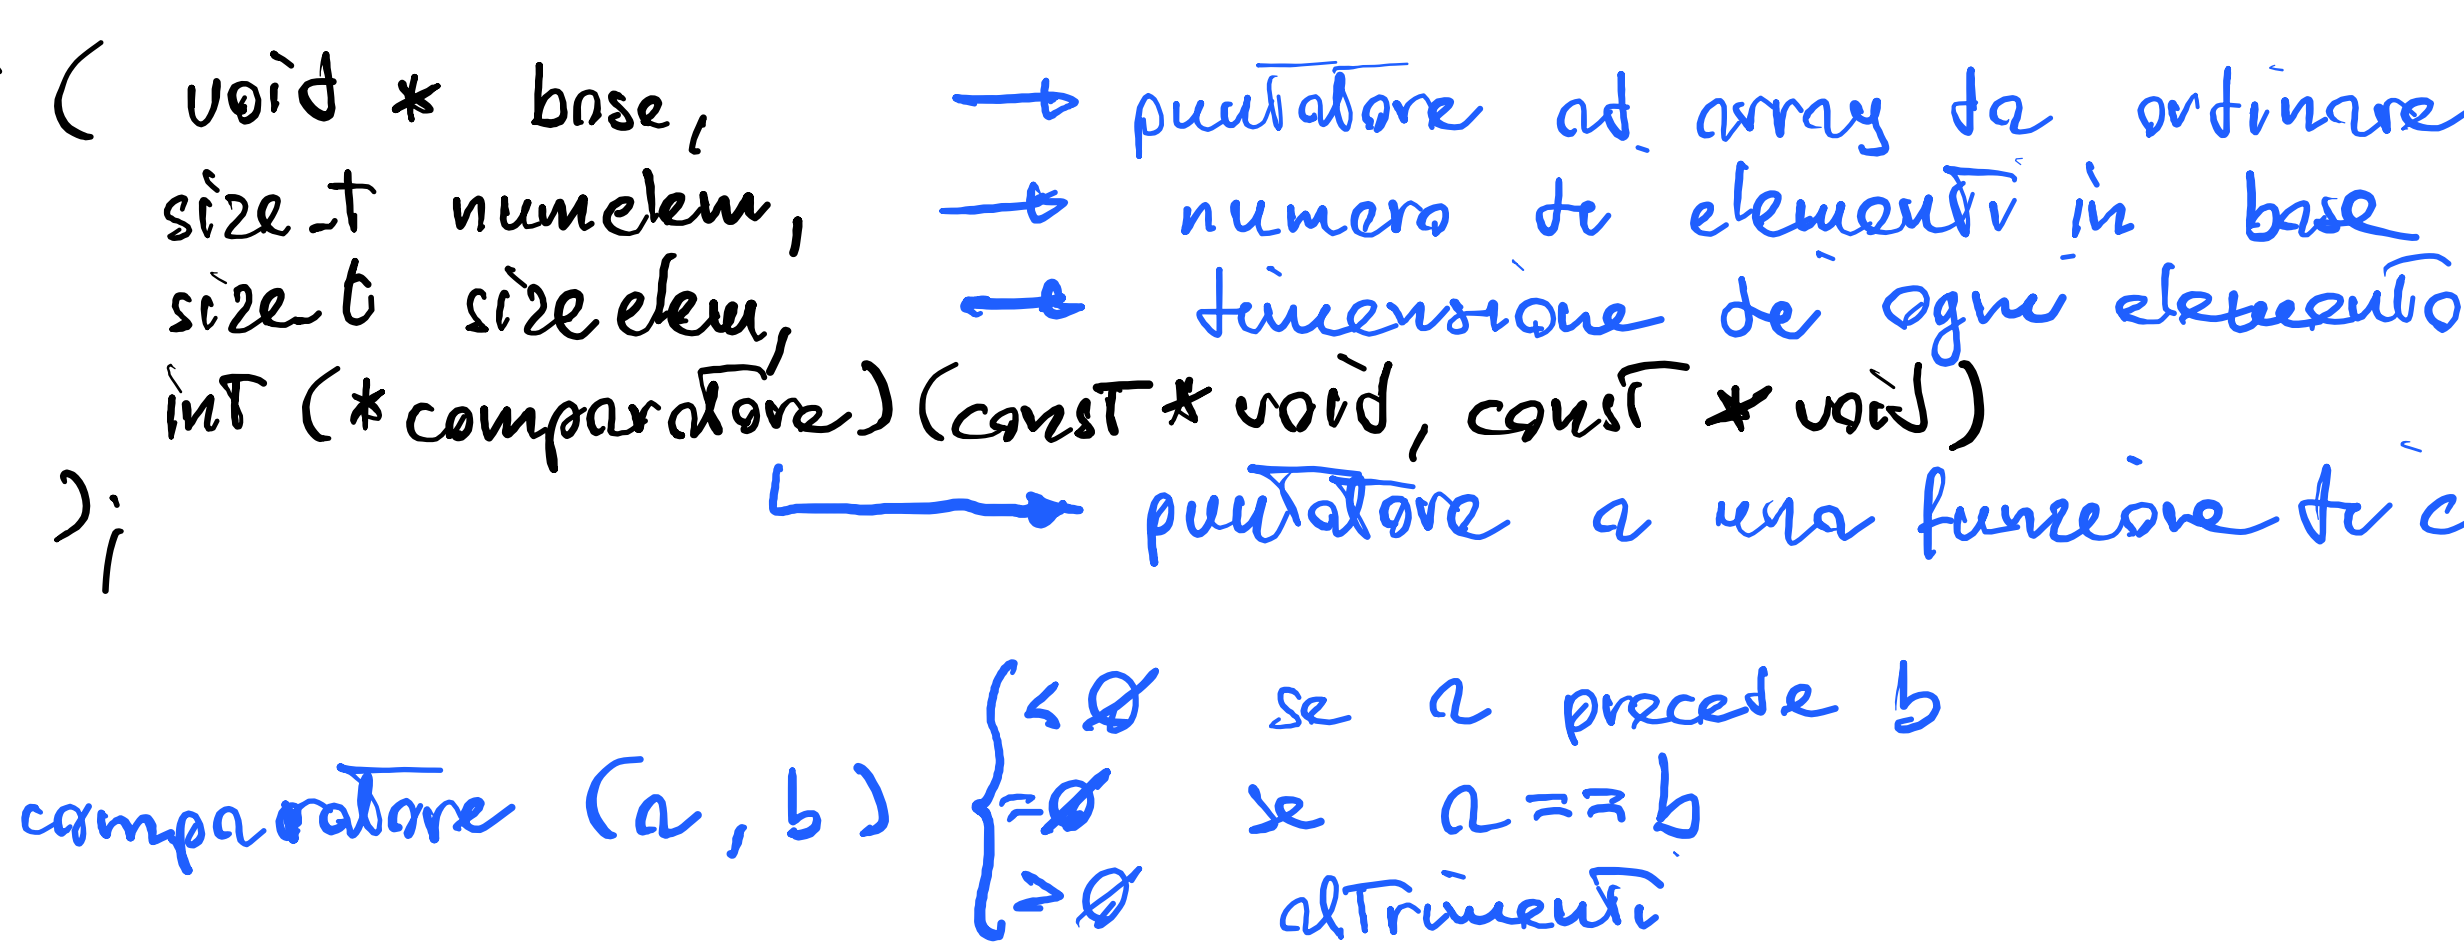 ( void * base, → puntatore ad array da ordinare
size_t numelem, → numero di elementi in base
size_t sizeelem, → dimensione di ogni elemento
int (*comparatore)(const * void, const * void)
); → puntatore a una funzione di c
< 0 se a precede b
comparatore (a, b) { = 0 se a == b
> 0 altrimenti